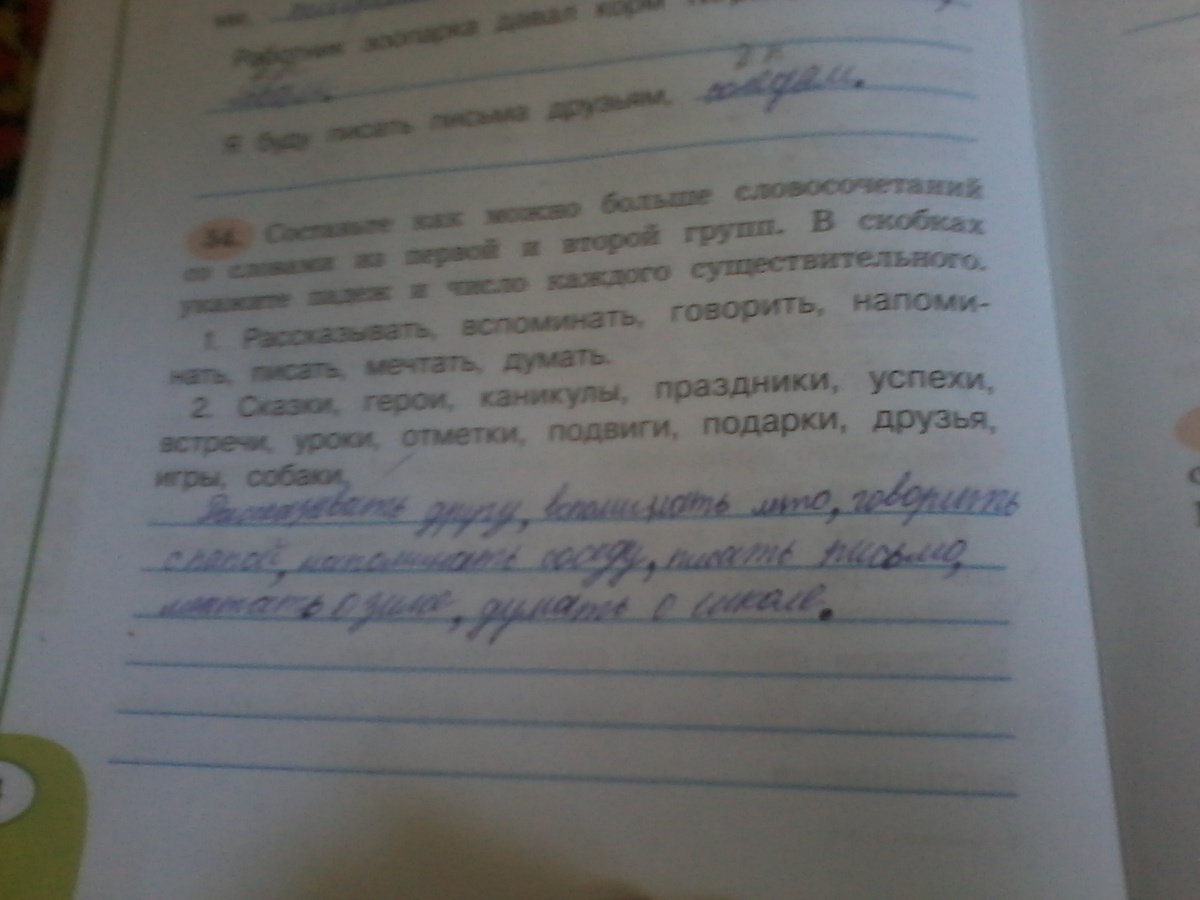 ми.
Работник зоопарка давал корм
Я буду писать письма друзьям,
2 п
54. Составьте как можно больше словосочетаний
со словами из первой и второй групп. В скобках
укажите падеж и число каждого существительного.
1. Рассказывать, вспоминать, говорить, напоми-
нать, писать, мечтать, думать.
2. Сказки, герои, каникулы, праздники, успехи,
встречи, уроки, отметки, подвиги, подарки, друзья,
игры, собаки.
Рассказывать другу, вспоминать лето, говорить
с папой, напоминать соседу, писать письмо,
мечтать о зиме, думать о школе.